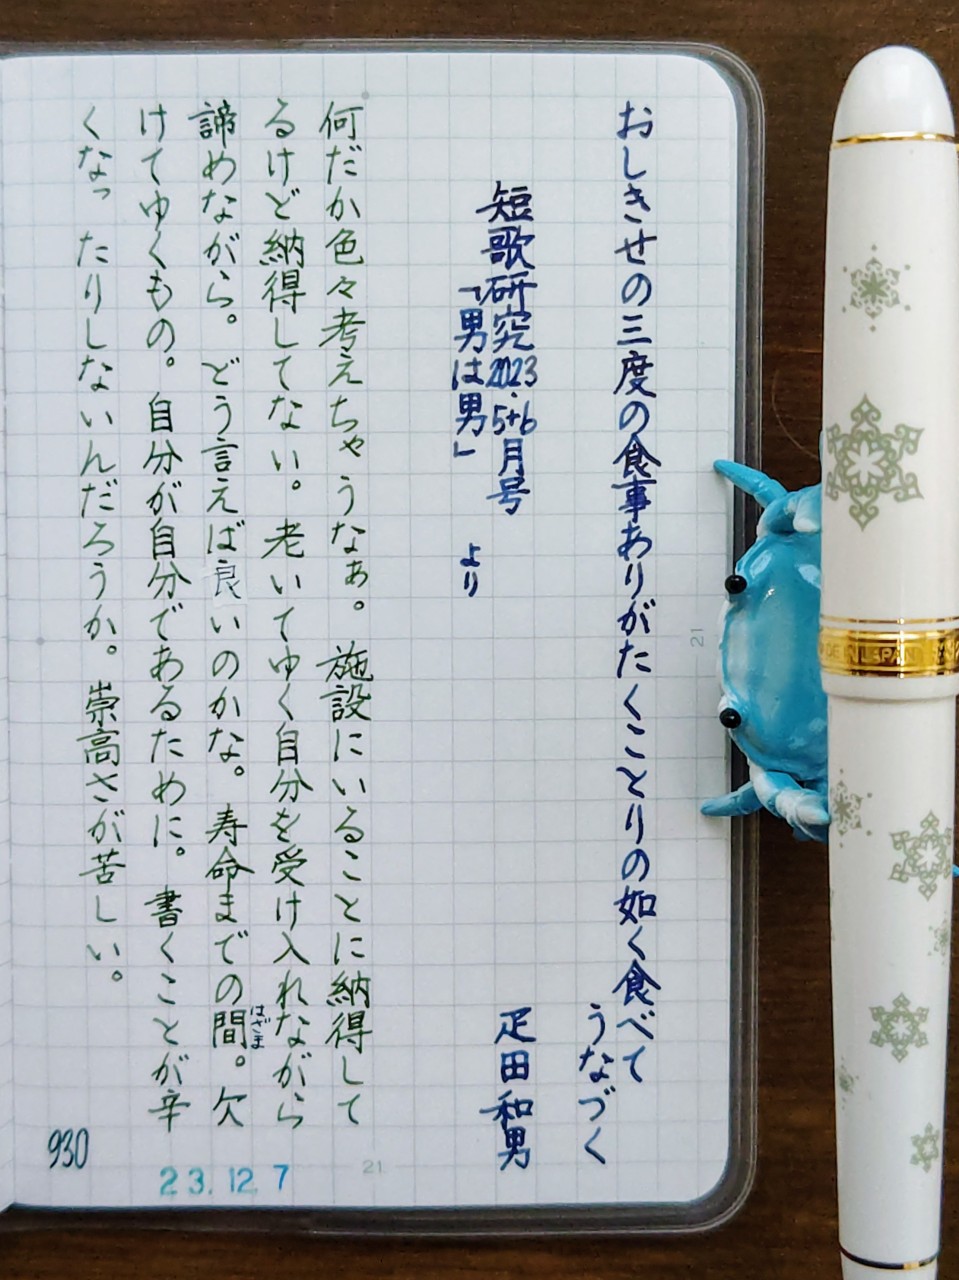 おしきせの三度の食事ありがたくことりの如く食べて
うなづく
短歌研究2023.5+6月号
「男は男」 より
疋田和男
何だか色々考えちゃうなぁ。施設にいることに納得して
るけど納得してない。老いてゆく自分を受け入れながら
諦めながら。どう言えば良いのかな。寿命までの間。欠
はざま
けてゆくもの。自分が自分であるために。書くことが辛
くなったりしないんだろうか。崇高さが苦しい。
930
23.12.7
21
21